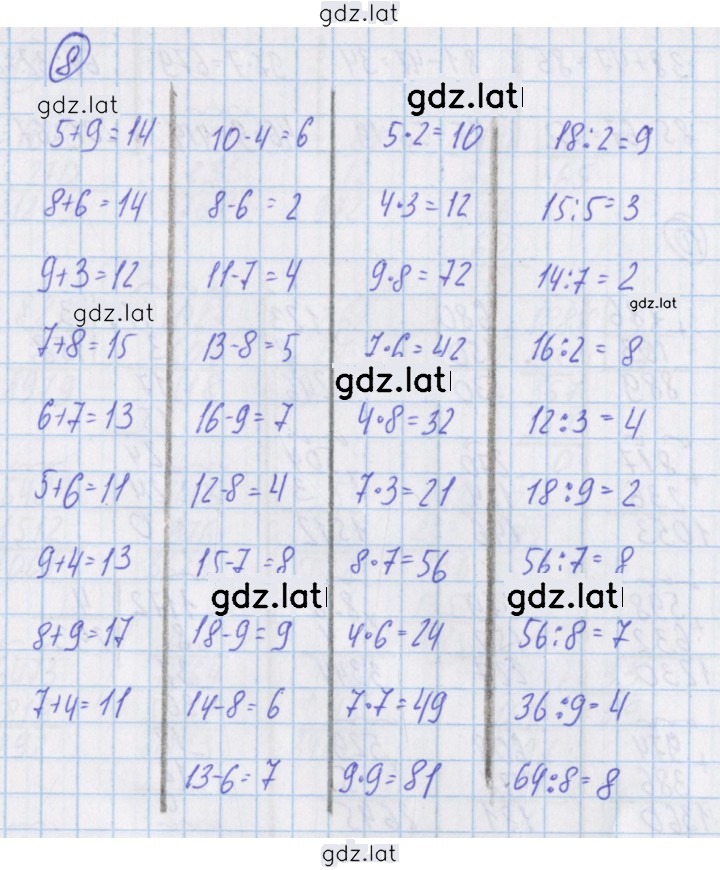 gdz.lat
8
gdz.lat
gdz.lat
5+9=14 10-4=6 5·2=10 18:2=9
8+6=14 8-6=2 4·3=12 15:5=3
9+3=12 11-7=4 9·8=72 14:7=2
gdz.lat
gdz.lat
7+8=15 13-8=5 7·6=42 16:2=8
gdz.lat
6+7=13 16-9=7 4·8=32 12:3=4
5+6=11 12-8=4 7·3=21 18:9=2
9+4=13 15-7=8 8·7=56 56:7=8
gdz.lat
gdz.lat
8+9=17 18-9=9 4·6=24 56:8=7
7+4=11 14-8=6 7·7=49 36:9=4
13-6=7 9·9=81 64:8=8
gdz.lat